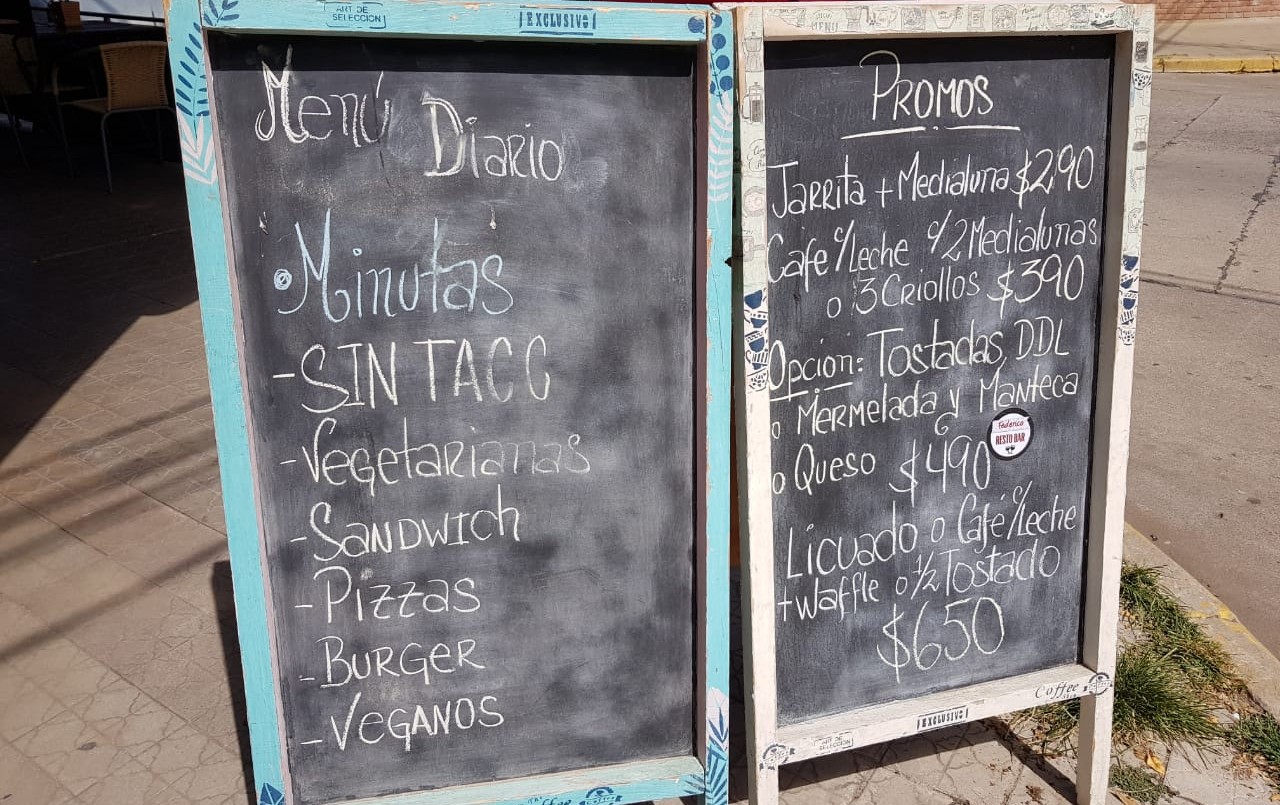 ART DE
SELECCION
EXCLUSIVO
Menú
Diario
Minutas
-SIN TACC
-Vegetarianas
-SANDWICH
-Pizzas
-BURGER
-VEGANOS
Coffee
PROMOS
Jarrita + Medialuna $2,90
Cafe c/Leche c/2 Medialunas
o 3 Criollos $390
Opcion: Tostadas, DDL
o Mermelada y Manteca
o Queso $490
Federico
RESTO BAR
Licuado o Café c/Leche
+ Waffle o 1/2 Tostado
$650
Coffee
EXCLUSIVO
ART DE
SELECCION